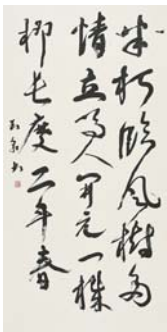 半朽臨風樹多
情立馬人開元一株
柳長慶二年春